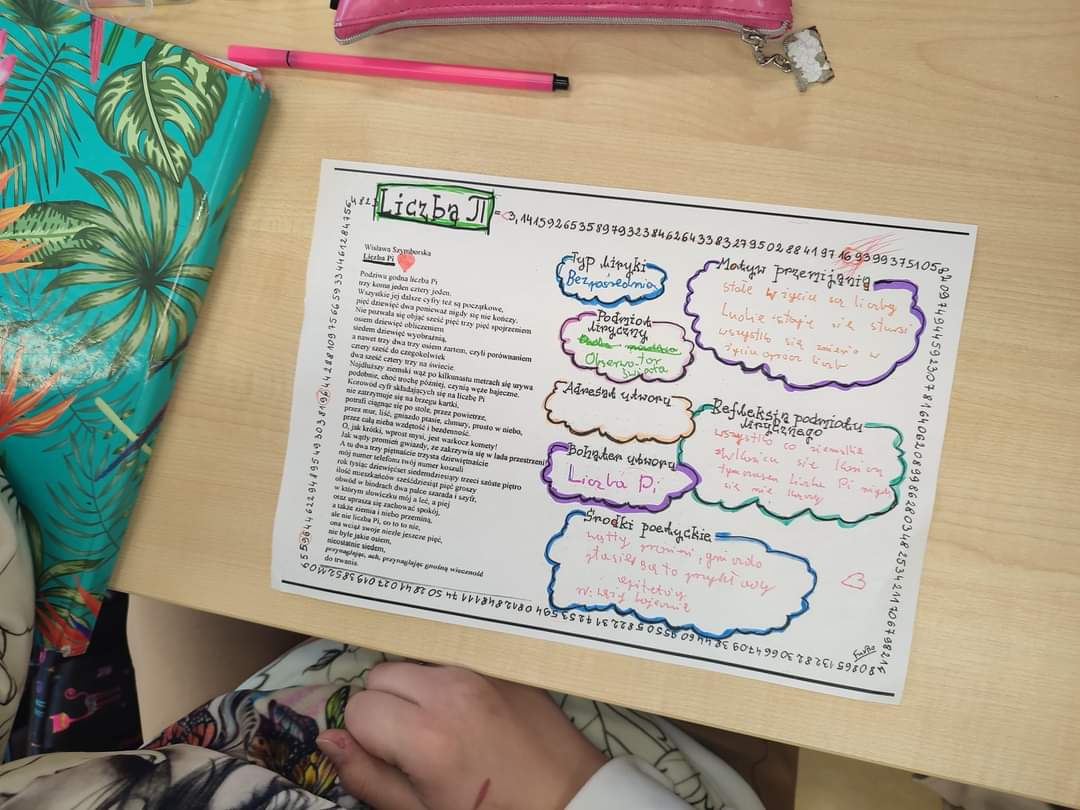 Liczba Π = 3,14159265358979323846264338327950288419716939937510582
Wisława Szymborska
Liczba Pi
Podziwu godna liczba Pi
trzy koma jeden cztery jeden.
Wszystkie jej dalsze cyfry też są początkowe,
pięć dziewięć dwa ponieważ nigdy się nie kończy.
Nie pozwala się objąć sześć pięć trzy pięć spojrzeniem
osiem dziewięć obliczeniem
siedem dziewięć wyobraźnią,
a nawet trzy dwa trzy osiem żartem, czyli porównaniem
cztery sześć do czegokolwiek
dwa sześć cztery trzy na świecie.
Najdłuższy ziemski wąż po kilkunastu metrach się urywa
podobnie, choć trochę później, czynią węże bajeczne.
Korowód cyfr składających się na liczbę Pi
nie zatrzymuje się na brzegu kartki,
potrafi ciągnąc się po stole, przez powietrze,
przez mur, liść, gniazdo ptasie, chmury, prosto w niebo,
przez całą nieba wzdętość i bezdenność.
O, jak krótki, wprost mysi, jest warkocz komety!
Jak wątły promień gwiazdy, że zakrzywia się w lada przestrzeni!
A tu dwa trzy piętnaście trzysta dziewiętnaście
mój numer telefonu twój numer koszuli
rok tysiąc dziewięćset siedemdziesiąty trzeci szóste piętro
ilość mieszkańców sześćdziesiąt pięć groszy
obwód w biodrach dwa palce szarada i szyfr,
w którym słowiczku mój a leć, a piej
oraz uprasza się zachować spokój,
a także ziemia i niebo przeminą,
ale nie liczba Pi, co to to nie,
ona wciąż swoje niezłe jeszcze pięć,
nie byle jakie osiem,
nieostatnie siedem,
przynaglając, ach, przynaglając gnuśną wieczność
do trwania.
Typ liryki
Bezpośrednia
Podmiot
liryczny
Obserwator
świata
Adresat utworu
Bohater utworu
Liczba Pi
Motyw przemijania
stałe w życiu są liczby
Ludzie stają się starsi
wszystko się zmienia w
życiu oprócz liczb
Refleksja podmiotu
lirycznego
wszystko co ziemskie
się kończy
tymczasem liczba Pi nigdy
się nie kończy
Środki poetyckie
wątły promień, gniazdo
ptasie są to przykłady
epitetów